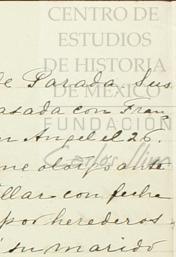 CENTRO DE
ESTUDIOS
DE HISTORIA
DE MEXICO
de Parada, sus
casada con Fran
FUNDACIÓN
n Angel el 26
Carlos Slim
me otorgó ante
llar con fecha
por herederos
su marido